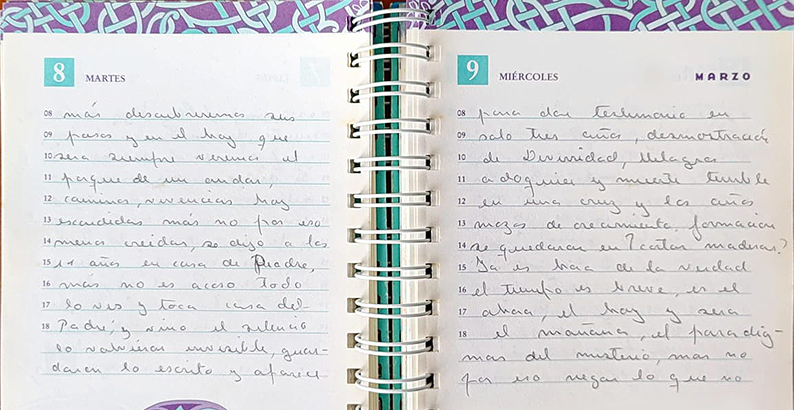 8 MARTES
08 más descubriremos sus
09 pasos y en el hoy que
10 sera siempre veremos el
11 porque de un andar,
12 caminos, vivencias hay
13 escondidas más no por eso
14 menos creidas, se dijo a los
15 11 años en casa de Padre,
16 más no es acaso todo
17 lo ves y toca casa del
18 Padre, y vino el silencio
lo volvieron invisible, guar-
daron lo escrito y aparece
9 MIÉRCOLES MARZO
08 para dar testimonio en
09 solo tres años, desmostración
10 de Divinidad, Milagros
11 a doquier y muerte
12 en una cruz y los años
13 mozos de crecimiento, formación
14 se quedaron en? cortar maderas?
15 Ya es hora de la verdad
16 el tiempo es breve, es el
17 ahora, el hoy y sera
18 el mañana, el paradig-
mas del misterio, mas no
por eso negar lo que no